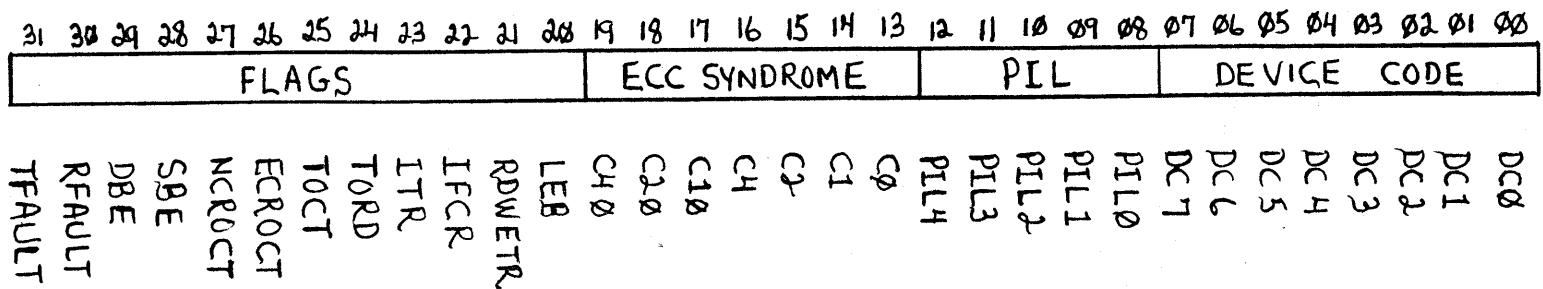 31 30 29 28 27 26 25 24 23 22 21 20 19 18 17 16 15 14 13 12 11 10 09 08 07 06 05 04 03 02 01 00
FLAGS ECC SYNDROME PIL DEVICE CODE
TFAULT RFAULT DBE SBE NCROCT ECROCT TOCT TORD ITR IFCR RDWETR LEB C40 C20 C10 C4 C2 C1 C0 PIL4 PIL3 PIL2 PIL1 PIL0 DC7 DC6 DC5 DC4 DC3 DC2 DC1 DC0